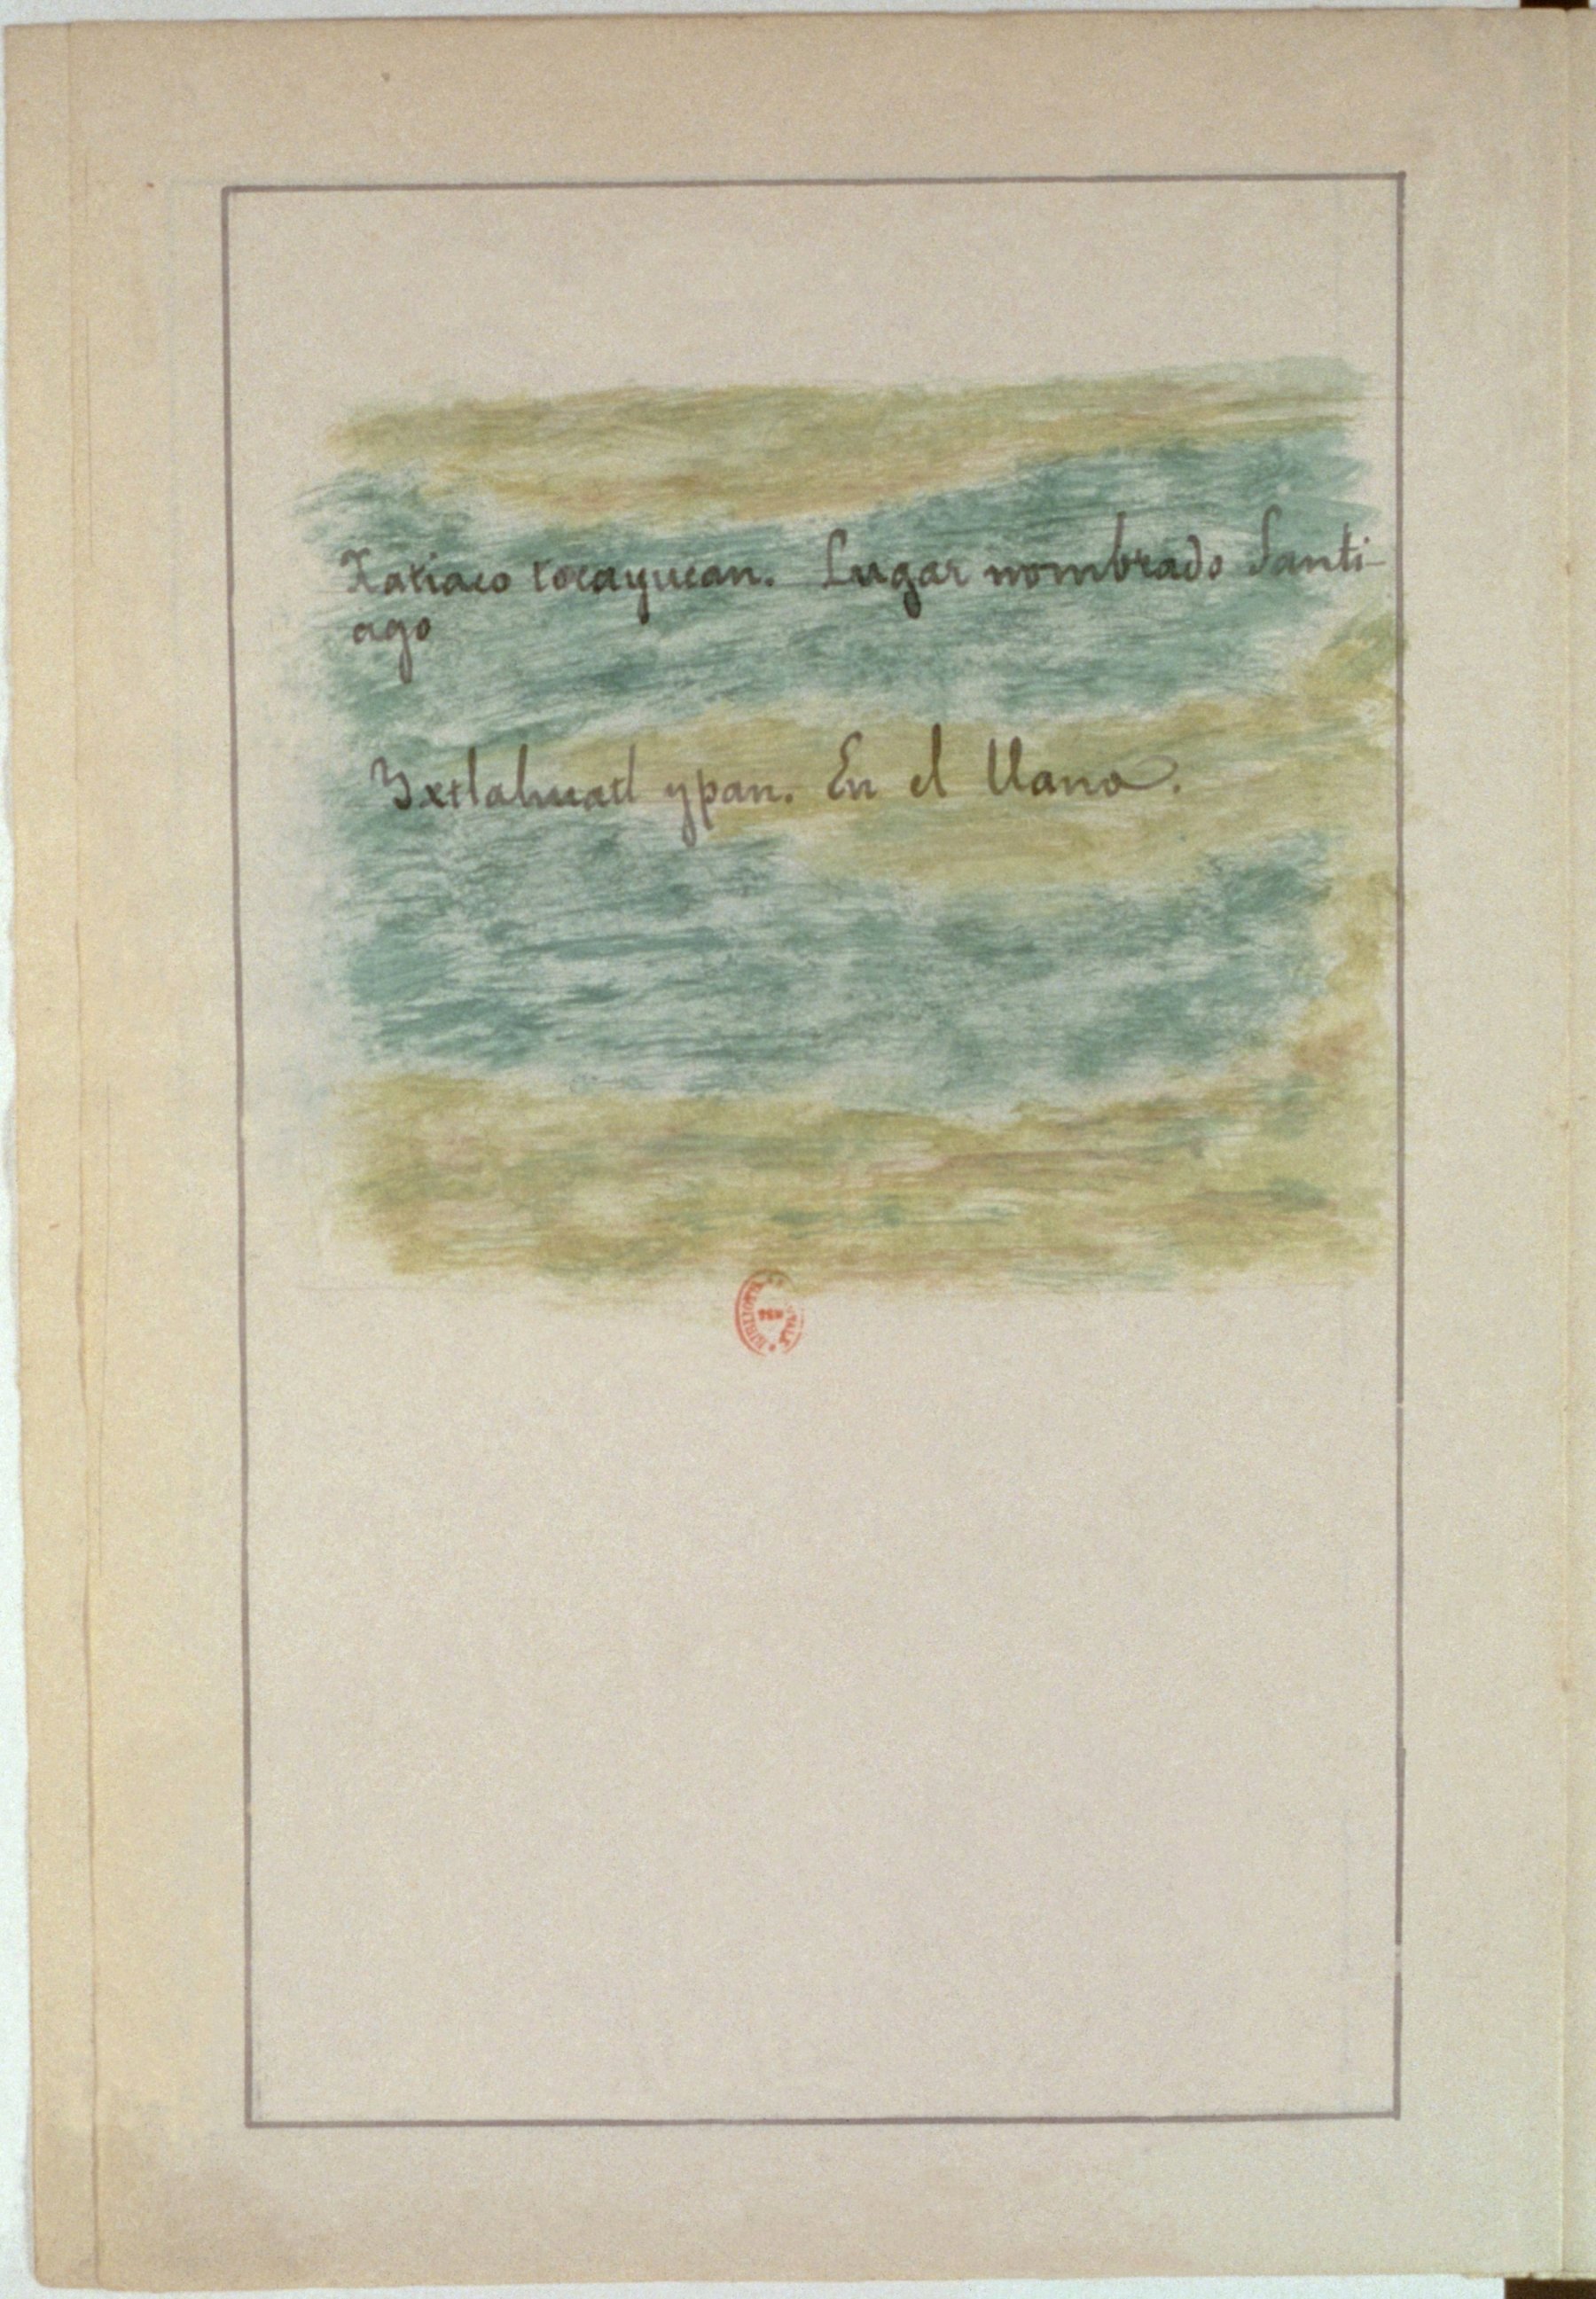 Xatiaco tocayucan. Lugar nombrado Santi-
ago
Yxtlahuatl ypan. En el llano.